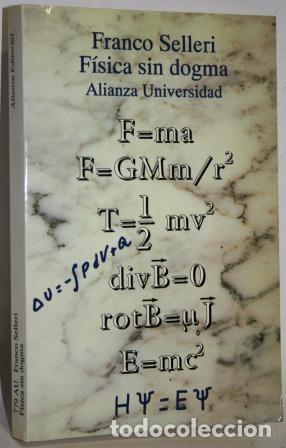 Franco Selleri
Física sin dogma
Alianza Universidad
F=ma
F=GMm/r²
T=1/2 mv²
ΔU=-∫PdV+Q
divB⃗=0
rotB⃗=μJ⃗
E=mc²
HΨ=EΨ
Alianza Editorial
779 AU Franco Selleri
Física sin dogma
todocoleccion.net